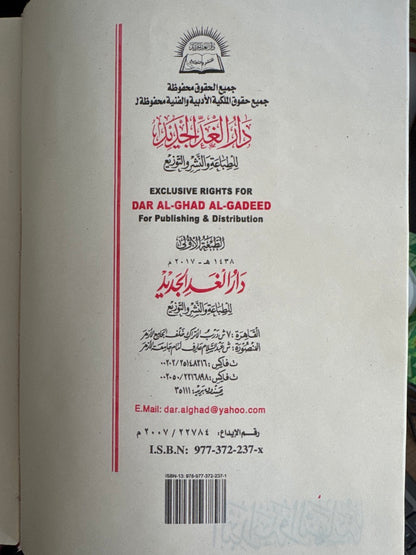 دار الغد الجديد
جميع الحقوق محفوظة
جميع حقوق الملكية الأدبية والفنية محفوظة لـ
دار الغد الجديد
للطباعة والنشر والتوزيع
EXCLUSIVE RIGHTS FOR
DAR AL-GHAD AL-GADEED
For Publishing & Distribution
الطبعة الأولى
١٤٣٨ هـ - ٢٠١٧ م
دار الغد الجديد
للطباعة والنشر والتوزيع
القاهرة: ٧ ش درب الأتراك خلف الجامع الأزهر
المنصورة: ش عبد السلام عارف أمام جامعة الأزهر
ت فاكس: ٠٠٢٠٢/٢٥١٤٨٢١٦
ت فاكس: ٠٠٢٠٥٠/٢٢١٦١٩٨
صندوق بريد: ٣٥١١١
E.Mail: dar.alghad@yahoo.com
رقم الإيداع: ٢٢٧٨٤ / ٢٠٠٧ م
I.S.B.N: 977-372-237-x
ISBN-13: 978-977-372-237-1